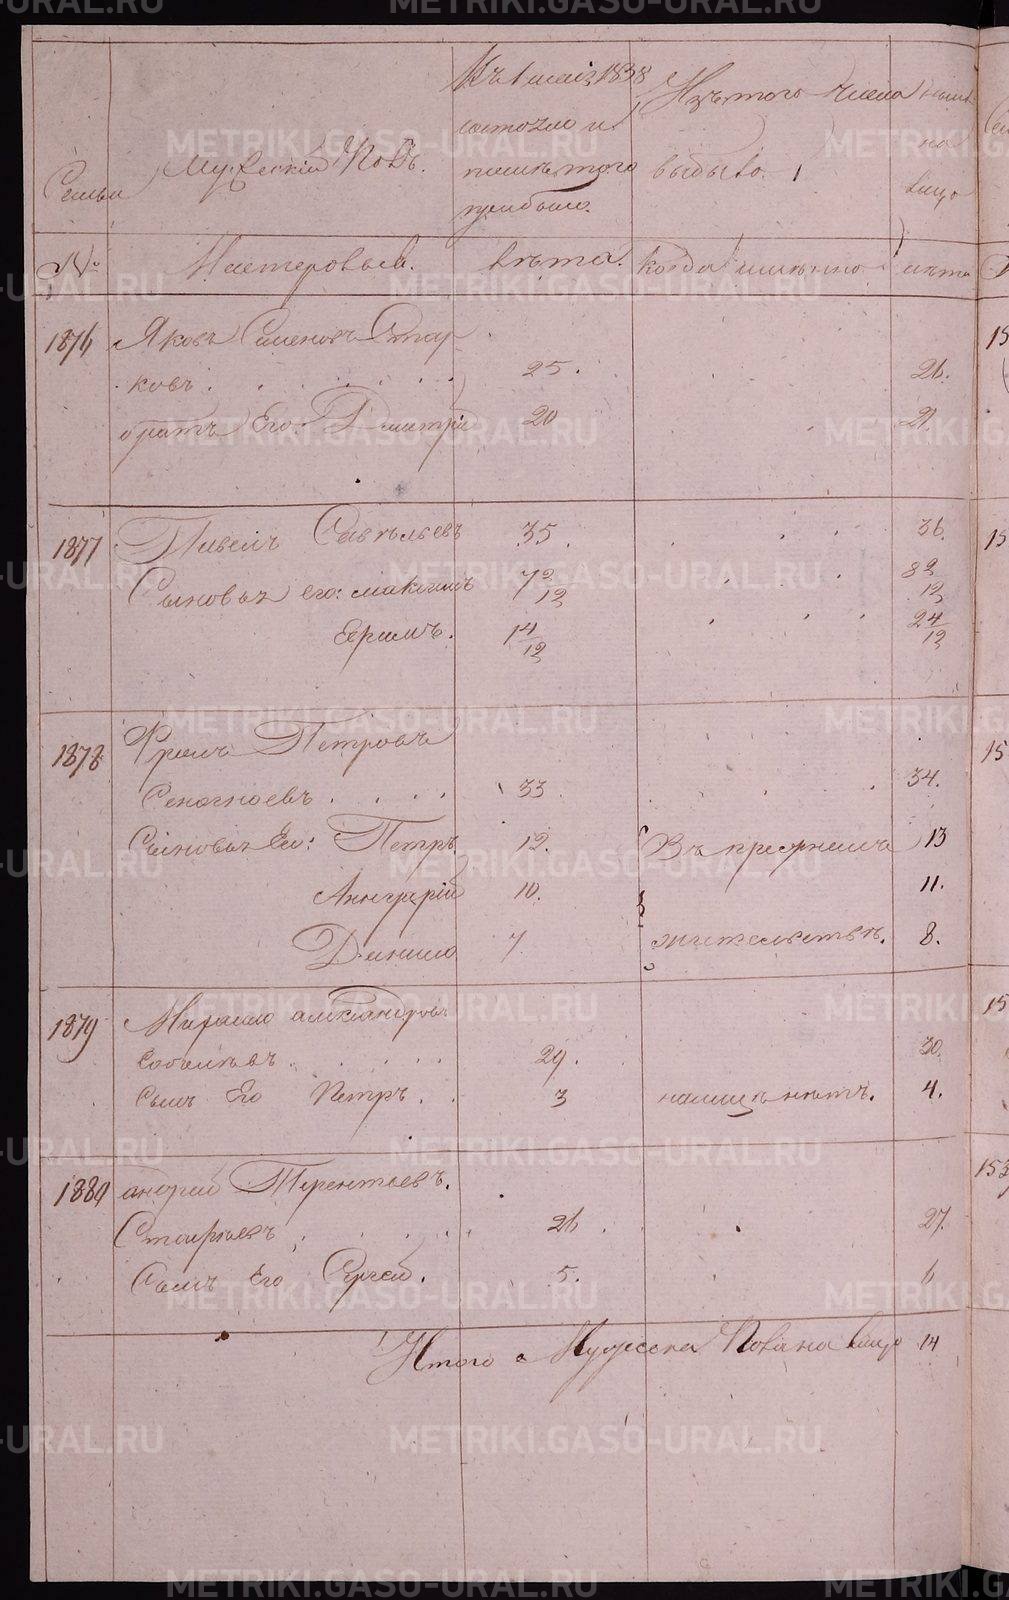 Семьи
Мужескій Полъ.
Къ 1 1838
состояло и
послѣ того
прибыло.
Изъ того числа
выбыло.
ныне
на
лицо
№
Мастеровые.
лѣта.
когда именно
лѣта
1876
Яковъ Семеновъ Стар
ковъ . . . . . . 25. 26.
братъ Его: Дмитрій 20 21.
1877
Павелъ Савельевъ 35. 36.
Сыновья его: максимъ 7 2/12 8 2/12
Ефимъ. 1 4/12 2 4/12
1878
Фролъ Петровъ
Сеногноевъ . . . . 33. 34.
Сыновья Его: Петръ 12. Въ прежнемъ 13
10. 11.
Данило 7 жительствѣ. 8.
1879
александровъ
Соболевъ . . . . 29. 30.
Сынъ Его Петръ . . 3 налицѣ нѣтъ. 4.
1880
андрей Терентьевъ.
26. 27.
Сынъ Его Сергей. 5. 6
Итого Мужеска Пола на лицо 14
METRIKI.GASO-URAL.RU